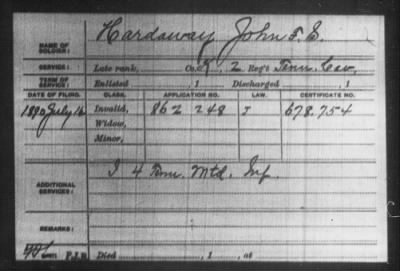 NAME OF SOLDIER: Hardaway, John F. S.
SERVICE: Late rank, Co. 2 Reg't Tenn. Cav.
TERM OF SERVICE: Enlisted , 1 Discharged , 1
DATE OF FILING. CLASS. APPLICATION NO. LAW. CERTIFICATE NO.
1890 July 16 Invalid, 862 248 J 678.754
Widow,
Minor,
ADDITIONAL SERVICES: I 4 Tenn. Mtd. Inf.
REMARKS:
P.I.D Died , 1 , at